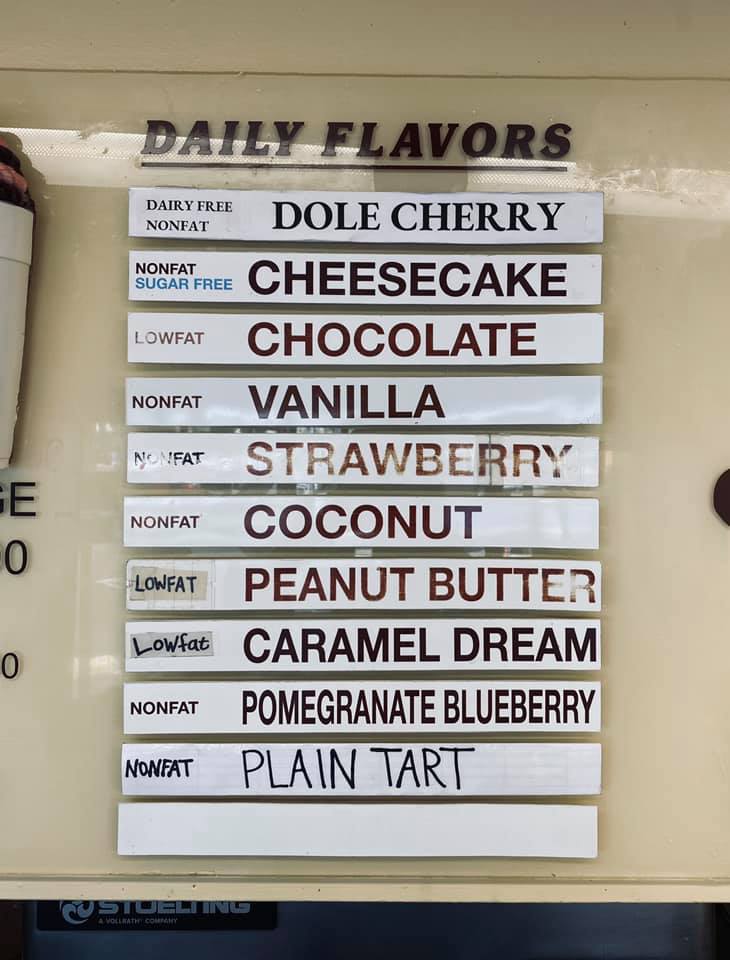 DAILY FLAVORS
DAIRY FREE
NONFAT
DOLE CHERRY
NONFAT
SUGAR FREE
CHEESECAKE
LOWFAT CHOCOLATE
NONFAT VANILLA
NONFAT STRAWBERRY
NONFAT COCONUT
LOWFAT PEANUT BUTTER
Lowfat CARAMEL DREAM
NONFAT POMEGRANATE BLUEBERRY
NONFAT PLAIN TART
GE
00
0
STOELTING
A VOLLRATH® COMPANY